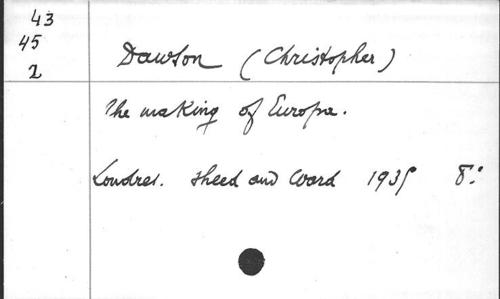 43
45
2
Dawson (Christopher)
The making of Europe.
Londres. Sheed and Ward 1935 8º